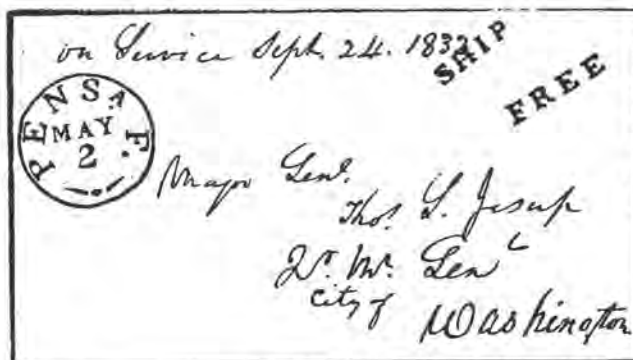 on Service Sept. 24. 183
SHIP
FREE
PENSA. F.
MAY
2
Major Genl.
Thos. S. Jesup
Qr. Mr. Genl
City of
Washington